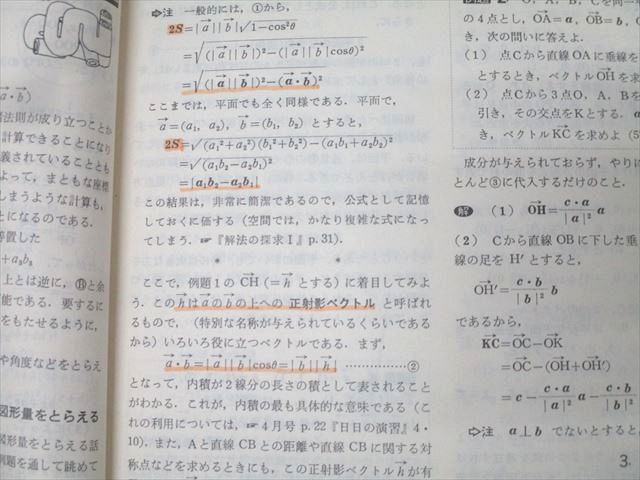 a・b)
諸法則が成り立つことか
計算できることになり
義されていることとも
よって，まともな座標
しまうような計算も，
とになるのである．
等置した
+a₃b₃
上とは逆に，Ⓑと余
能である．要するに
をもたせるように，
や角度などをとらえ
図形量をとらえる
図形量をとらえる話
例題を通して眺めて
⇨注 一般的には，①から，
2S=|a||b|√1−cos²θ
=√(|a||b|)²−(|a||b|cosθ)²
=√(|a||b|)²−(a・b)²
ここまでは，平面でも全く同様である．平面で，
a=(a₁, a₂)，b=(b₁, b₂) とすると，
2S=√(a₁²+a₂²)(b₁²+b₂²)−(a₁b₁+a₂b₂)²
=√(a₁b₂−a₂b₁)²
=|a₁b₂−a₂b₁|
この結果は，非常に簡潔であるので，公式として記憶
しておくに価する（空間では，かなり複雑な式になっ
てしまう．☞『解法の探求Ⅰ』p.31）．
ここで，例題1の CH（=h とする）に着目してみよ
う．この h は a の b の上への 正射影ベクトル と呼ばれ
るもので，（特別な名称が与えられているくらいである
から）いろいろ役に立つベクトルである．まず，
a・b=|a||b|cosθ=|b||h| ……………②
となって，内積が2線分の長さの積として表されること
がわかる．これが，内積の最も具体的な意味である（こ
れの利用については，☞4月号 p.22『日日の演習』4・
10）．また，A と直線 CB との距離や直線 CB に関する対
称点などを求めるときにも，この正射影ベクトル h が有
の4点とし，OA=a，OB=b，
き，次の問いに答えよ．
(1) 点Cから直線OAに垂線を
とするとき，ベクトルOHを求
(2) 点Cから3点O，A，Bを
引き，その交点をKとする．
き，ベクトルKCを求めよ
成分が与えられておらず，やりに
とんど③に代入するだけのこと．
解 (1) OH=c・a/|a|² a
(2) Cから直線OBに下した垂
線の足を H′ とすると，
OH′=c・b/|b|² b
であるから，
KC=OC−OK
=OC−(OH+OH′)
=c−c・a/|a|² a−c・b/|b|²
⇨注 a⊥b でないとすると
3